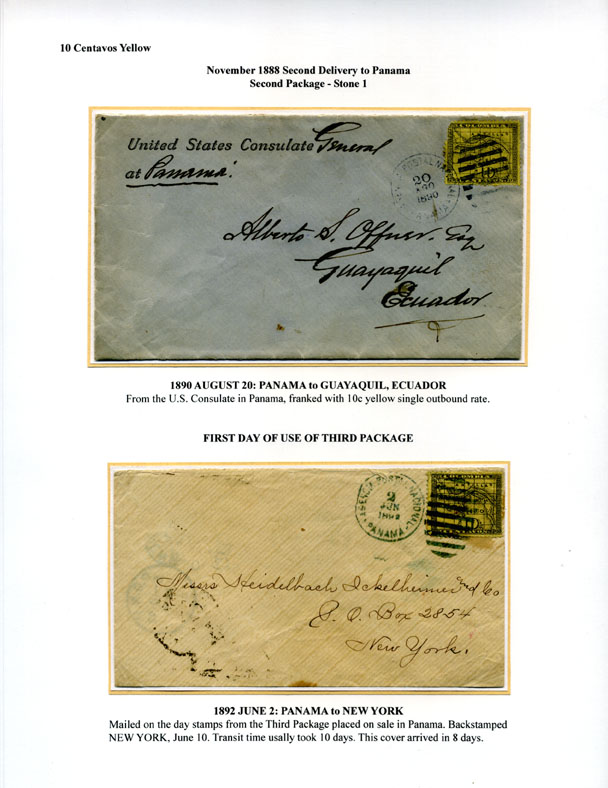 10 Centavos Yellow
November 1888 Second Delivery to Panama
Second Package - Stone 1
United States Consulate General
at Panama.
COLOMBIA
20
AGO
1890
Alberto S. Offner. Esq
Guayaquil
Ecuador
1890 AUGUST 20: PANAMA to GUAYAQUIL, ECUADOR
From the U.S. Consulate in Panama, franked with 10c yellow single outbound rate.
FIRST DAY OF USE OF THIRD PACKAGE
AGENCIA POSTAL NACIONAL
2
JUN
1892
PANAMA
COLOMBIA
Messrs Heidelbach Ickelheimer and Co
P. O. Box 2854
New York.
1892 JUNE 2: PANAMA to NEW YORK
Mailed on the day stamps from the Third Package placed on sale in Panama. Backstamped
NEW YORK, June 10. Transit time usally took 10 days. This cover arrived in 8 days.